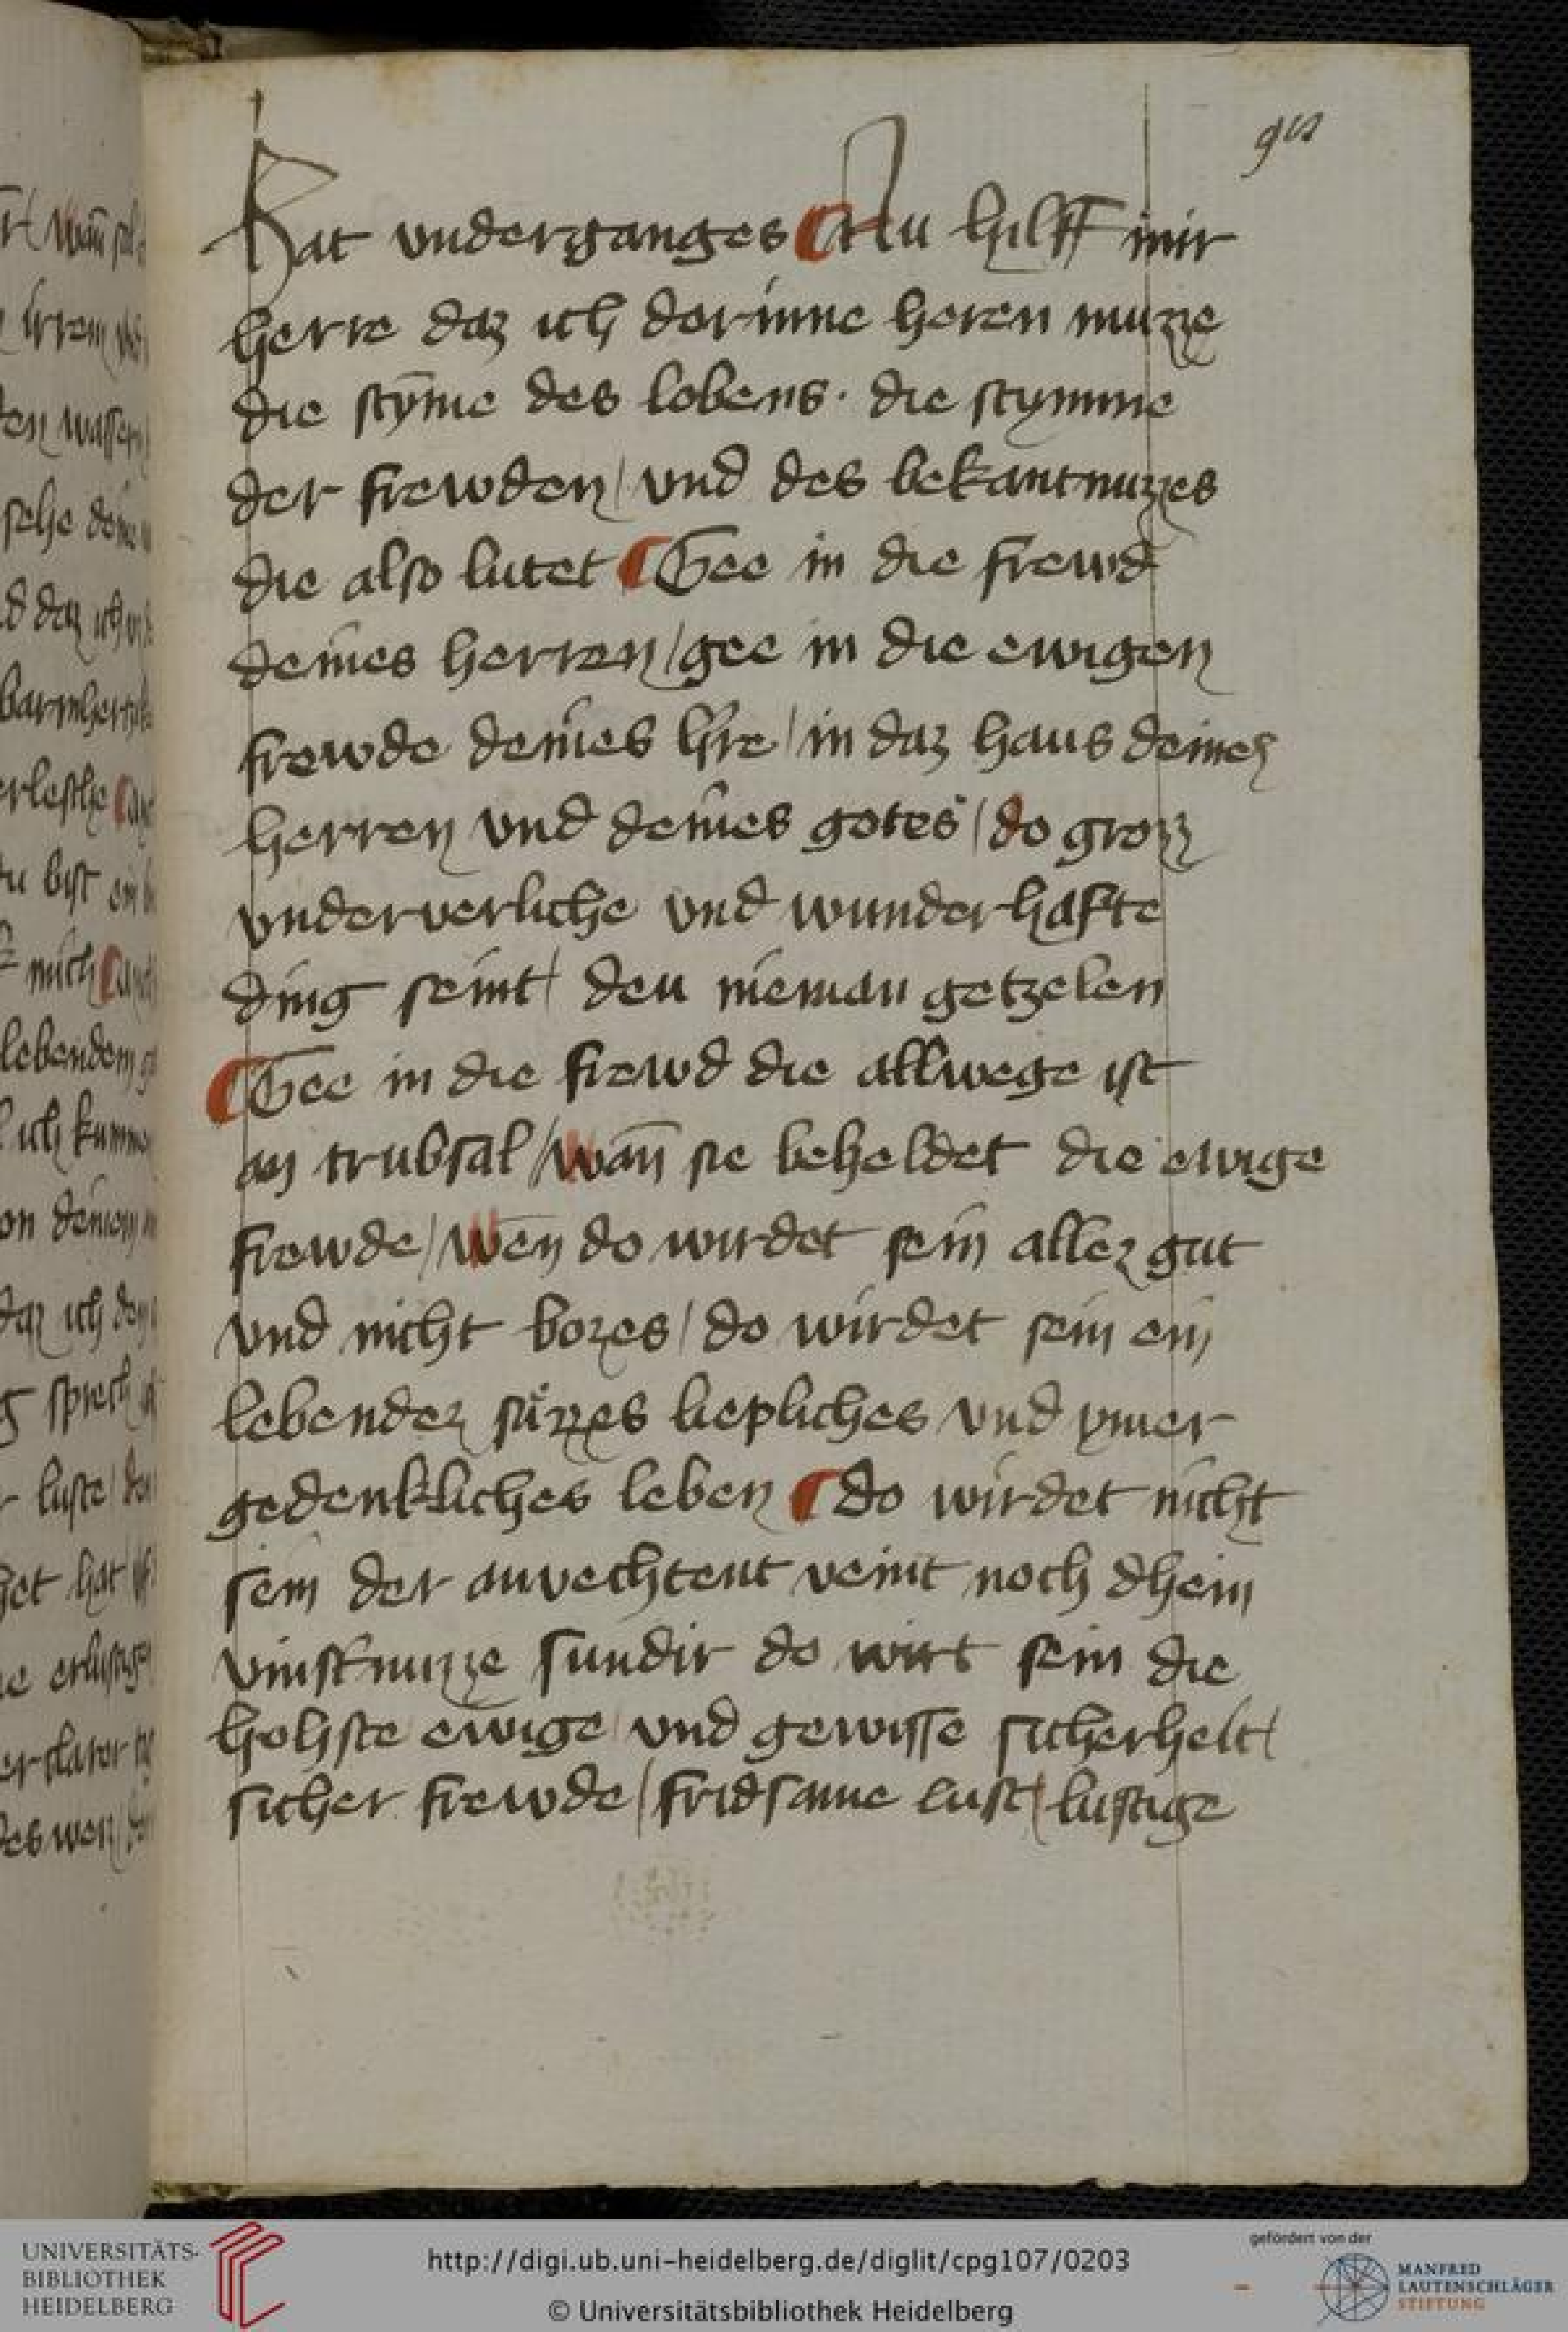 Hat underganges Nu hilff mir
herre daz ich dorinne horen muzze
die stȳme des lobens · die stymme
der frewden / und des bekantnuzzes
die also lutet Gee in die frewd
deines herren / gee in die ewigen
frewde deines hr̄e / in daz haus deines
herren und deines gotes / do grozz
underverliche und wunderhafte
ding seint / den nieman getzelen
Gee in die frewd die allwege ist
an trubsal / wan̄ sie beheldet die ewige
frewde / wēn do wirdet sein allez gut
und nicht bozes / do wirdet sein ein
lebendez süzzes liepliches und ymer
gedenkliches leben do wirdet nicht
sein der anvechtent veint noch dhein
vinstnuzze sundir do wirt sein die
hohste ewige und gewisse sicherheit /
sicher frewde / fridsame lust / lustige
UNIVERSITÄTS-
BIBLIOTHEK
HEIDELBERG
http://digi.ub.uni-heidelberg.de/diglit/cpg107/0203
© Universitätsbibliothek Heidelberg
gefördert von der
MANFRED
LAUTENSCHLÄGER
STIFTUNG